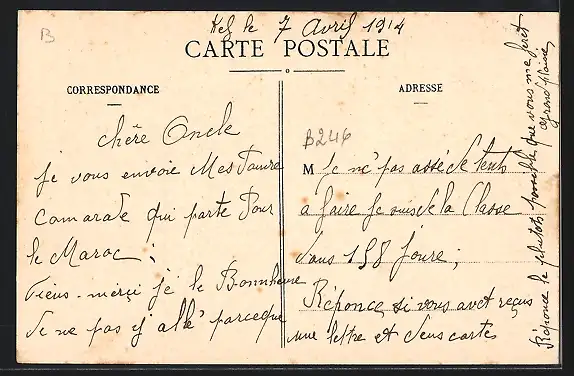 B
Kef le 7 Avril 1914
CARTE POSTALE
CORRESPONDANCE
ADRESSE
B246
chère Oncle
Je vous envoie Mes
Camarade qui parte Pour
le Maroc;
Tiens-merçi je le Bonnheure
de ne pas y allé parceque
M Je ne pas assé de temts
a faire Je suis de la Classe
dans 158 Joure;
Réponce si vous avet reçus
une lettre et deus cartes
Réponce le plutots possible que vous me feret
grand plaire